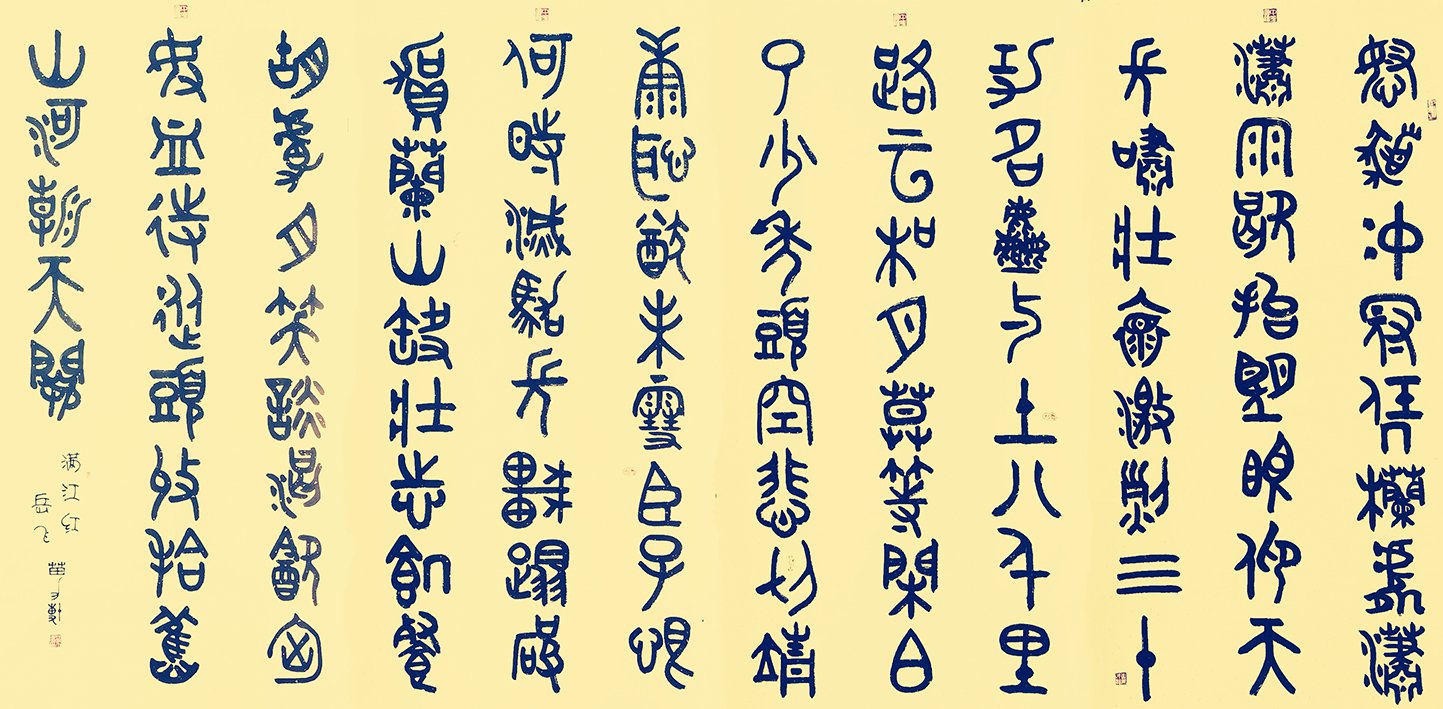 怒髮冲冠凭欄處瀟
瀟雨歇抬望眼仰天
長嘯壯懷激烈三十
功名塵与土八千里
路云和月莫等閑白
了少年頭空悲切靖
康恥猶未雪臣子恨
何時滅駕長車踏破
賀蘭山缺壯志飢餐
胡虜肉笑談渴飲匈
奴血待從頭收拾舊
山河朝天闕
满江红
岳飞